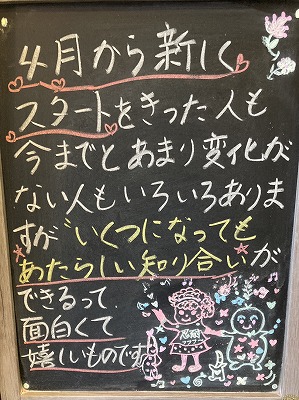 4月から新しく
スタートをきった人も
今までとあまり変化が
ない人もいろいろありま
すが"いくつになっても
あたらしい知り合い"が
できるって
面白くて
嬉しいものです